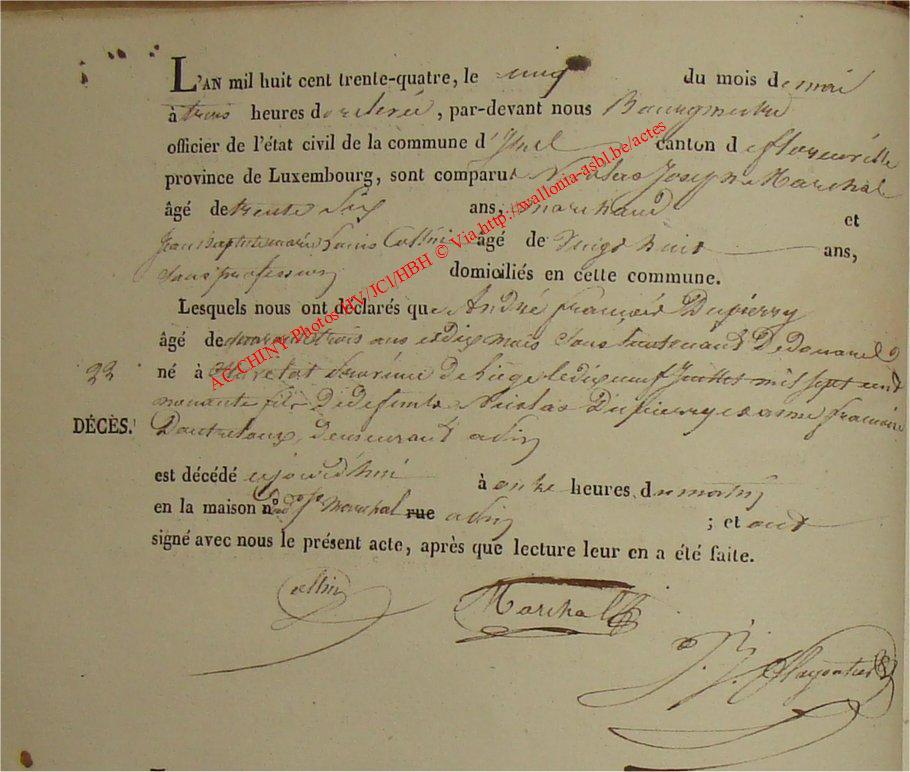 L'AN mil huit cent trente-quatre, le du mois de mai
à trois heures de relevée, par-devant nous Bourgmestre
officier de l'état civil de la commune d'Isnel canton de florenville
province de Luxembourg, sont comparus Nicolas Joseph Marchal
âgé de trente six ans, marchand et
Jean Baptiste marie Louis Collin âgé de vingt huit ans,
sans profession domiciliés en cette commune.
Lesquels nous ont déclarés que André françois Dupierry
âgé de quarante trois ans et dix mois sous lieutenant De douanes
22 né à province de Liège le dix neuf Juillet mil sept cent
nonante fils De defunts Nicolas Dupierry et anne françoise
DÉCÈS. demeurant
est décédé aujourd'hui à onze heures du matin
en la maison n° Marchal rue ; et ont
signé avec nous le présent acte, après que lecture leur en a été faite.
Collin
Marchal
J. J. Charpentier
ACCHINY-Photos HV/JCl/HBH © Via http://wallonia-asbl.be/actes